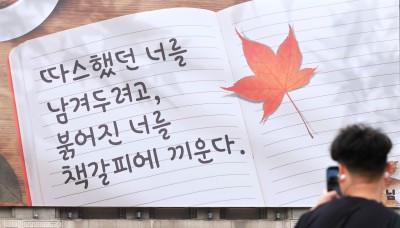 따스했던 너를
남겨두려고,
붉어진 너를
책갈피에 끼운다.